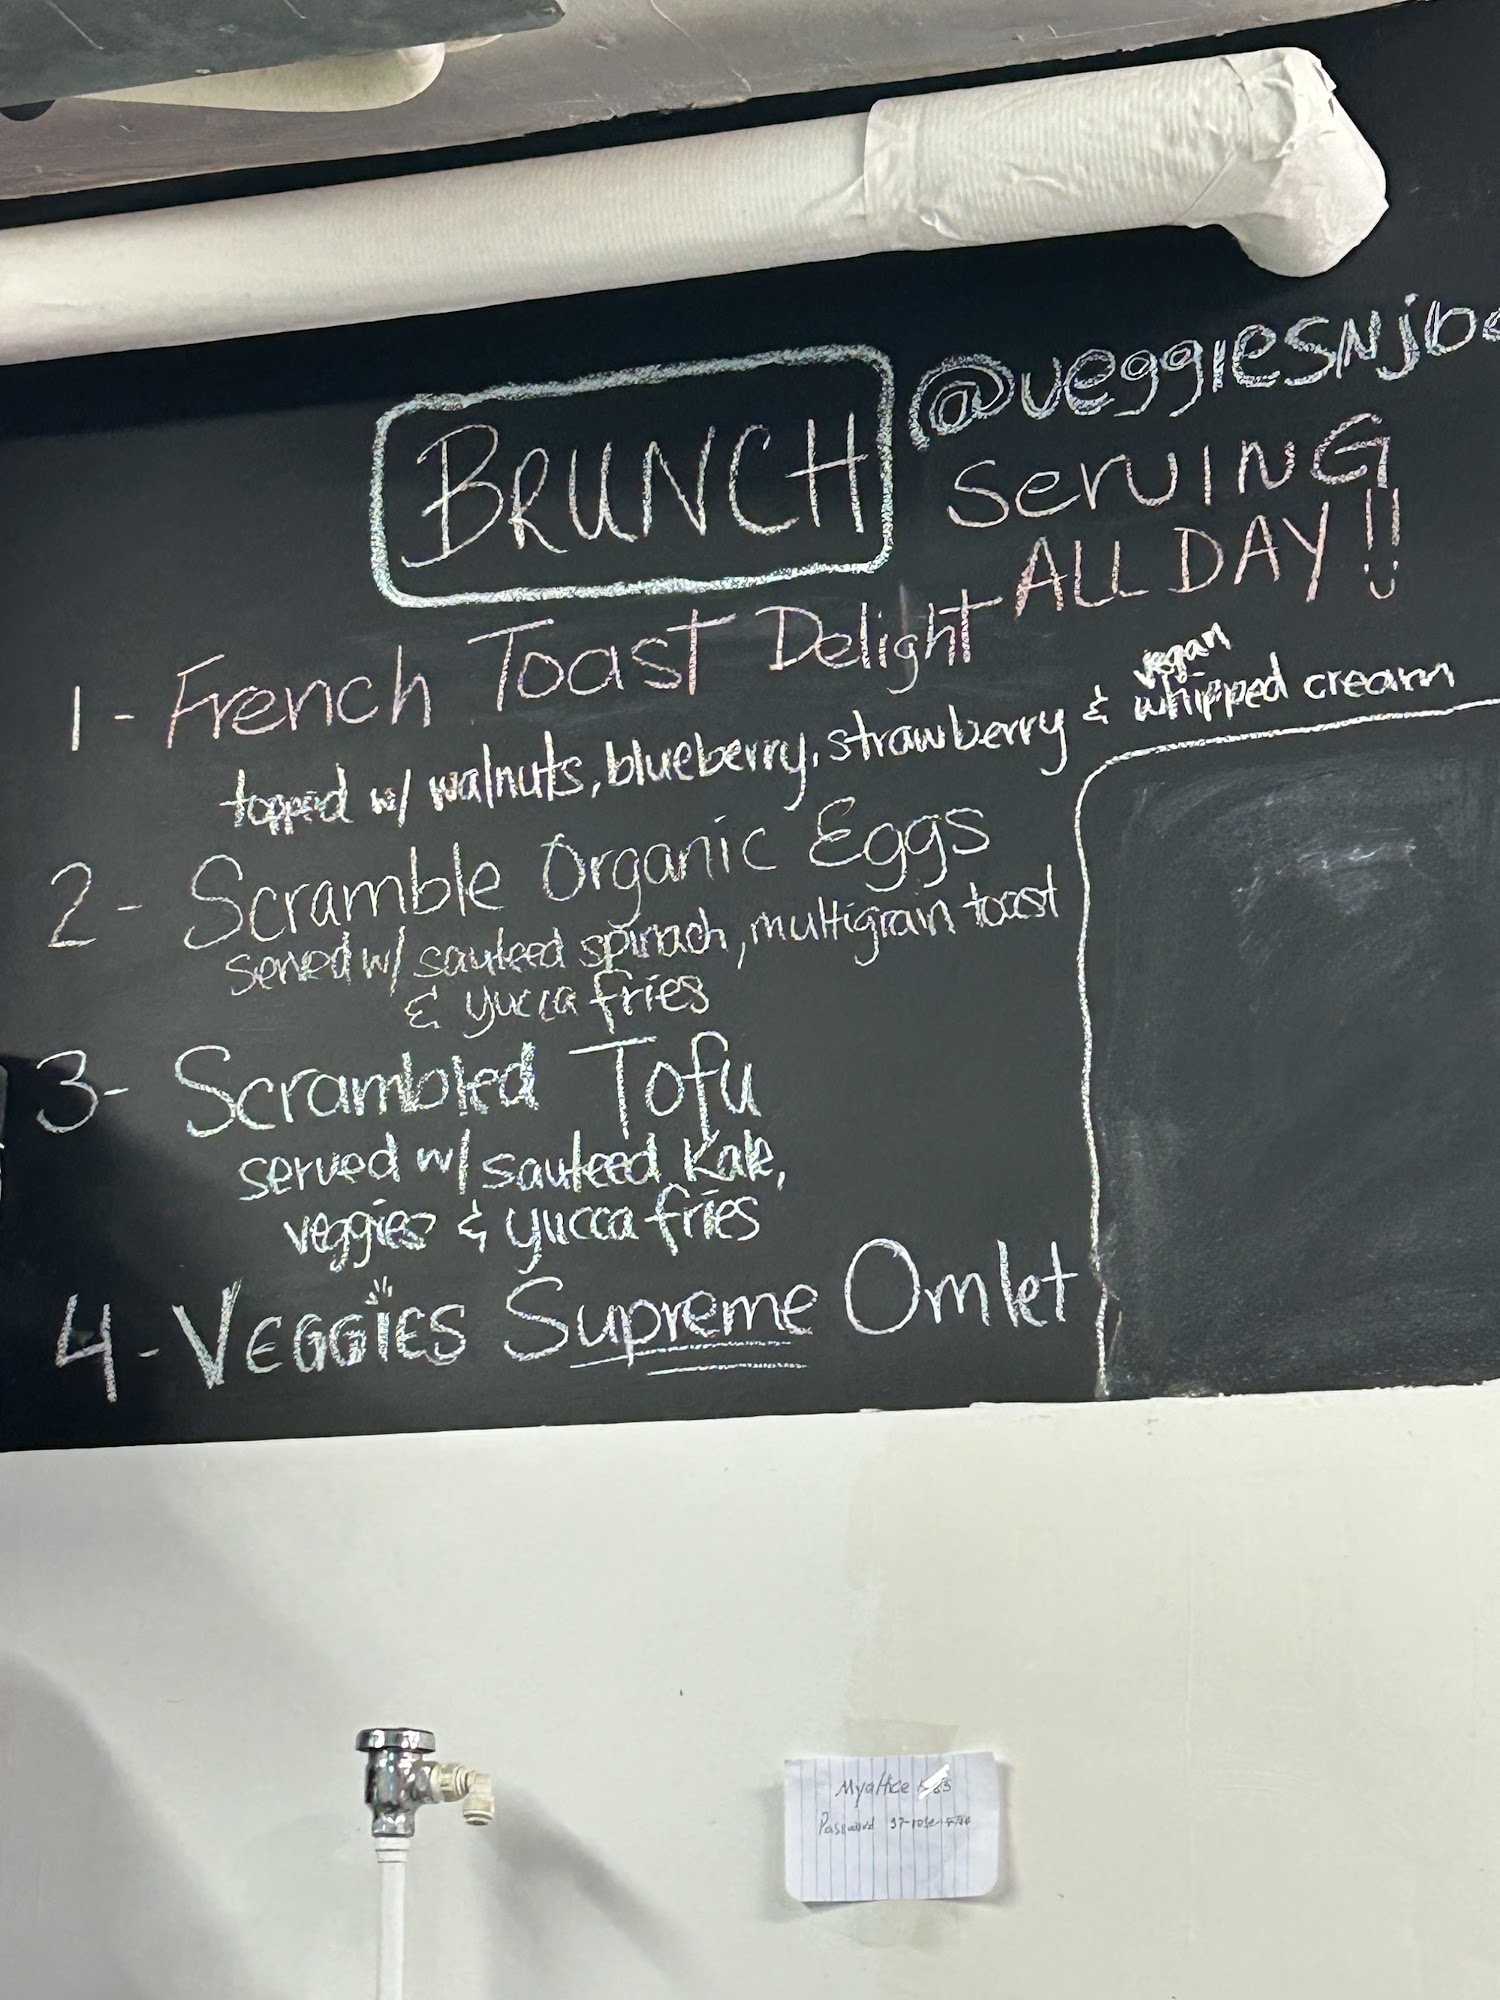 BRUNCH
@veggiesnjb
Serving
ALL DAY!!
1 - French Toast Delight
topped w/ walnuts, blueberry, strawberry & vegan whipped cream
2 - Scramble Organic Eggs
served w/ sauteed spinach, multigrain toast
& yucca fries
3 - Scrambled Tofu
served w/ sauteed Kale,
veggies & yucca fries
4 - VEGGiES Supreme Omlet
Myaltice
Password